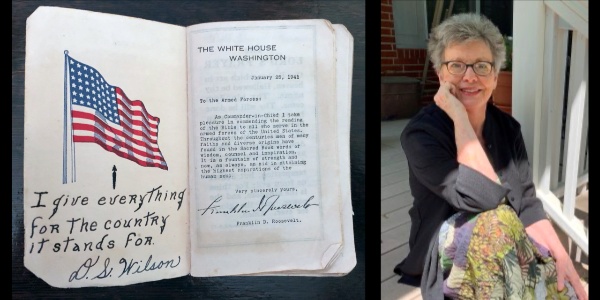 I give everything
for the country
it stands for.
D. S. Wilson
THE WHITE HOUSE
WASHINGTON
January 25, 1942
To the Armed Forces:
As Commander-in-Chief I take
pleasure in commending the reading
of the Bible to all who serve in the
armed forces of the United States.
Throughout the centuries men of many
faiths and diverse origins have
found in the Sacred Book words of
wisdom, counsel and inspiration.
It is a fountain of strength and
now, as always, an aid in attaining
the highest aspirations of the
human soul.
Very sincerely yours,
Franklin D. Roosevelt
Franklin D. Roosevelt.